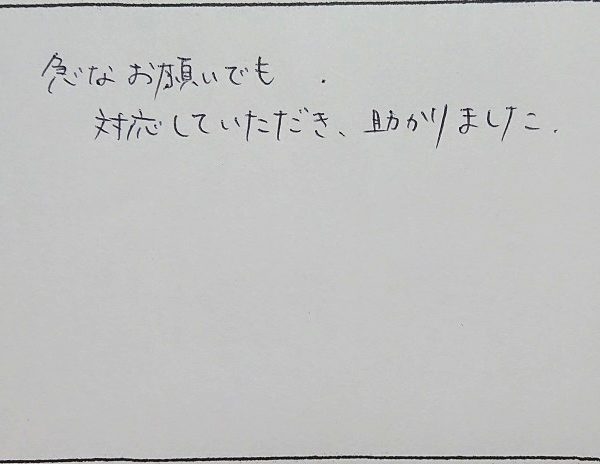 急なお願いでも.
対応していただき、助かりました.